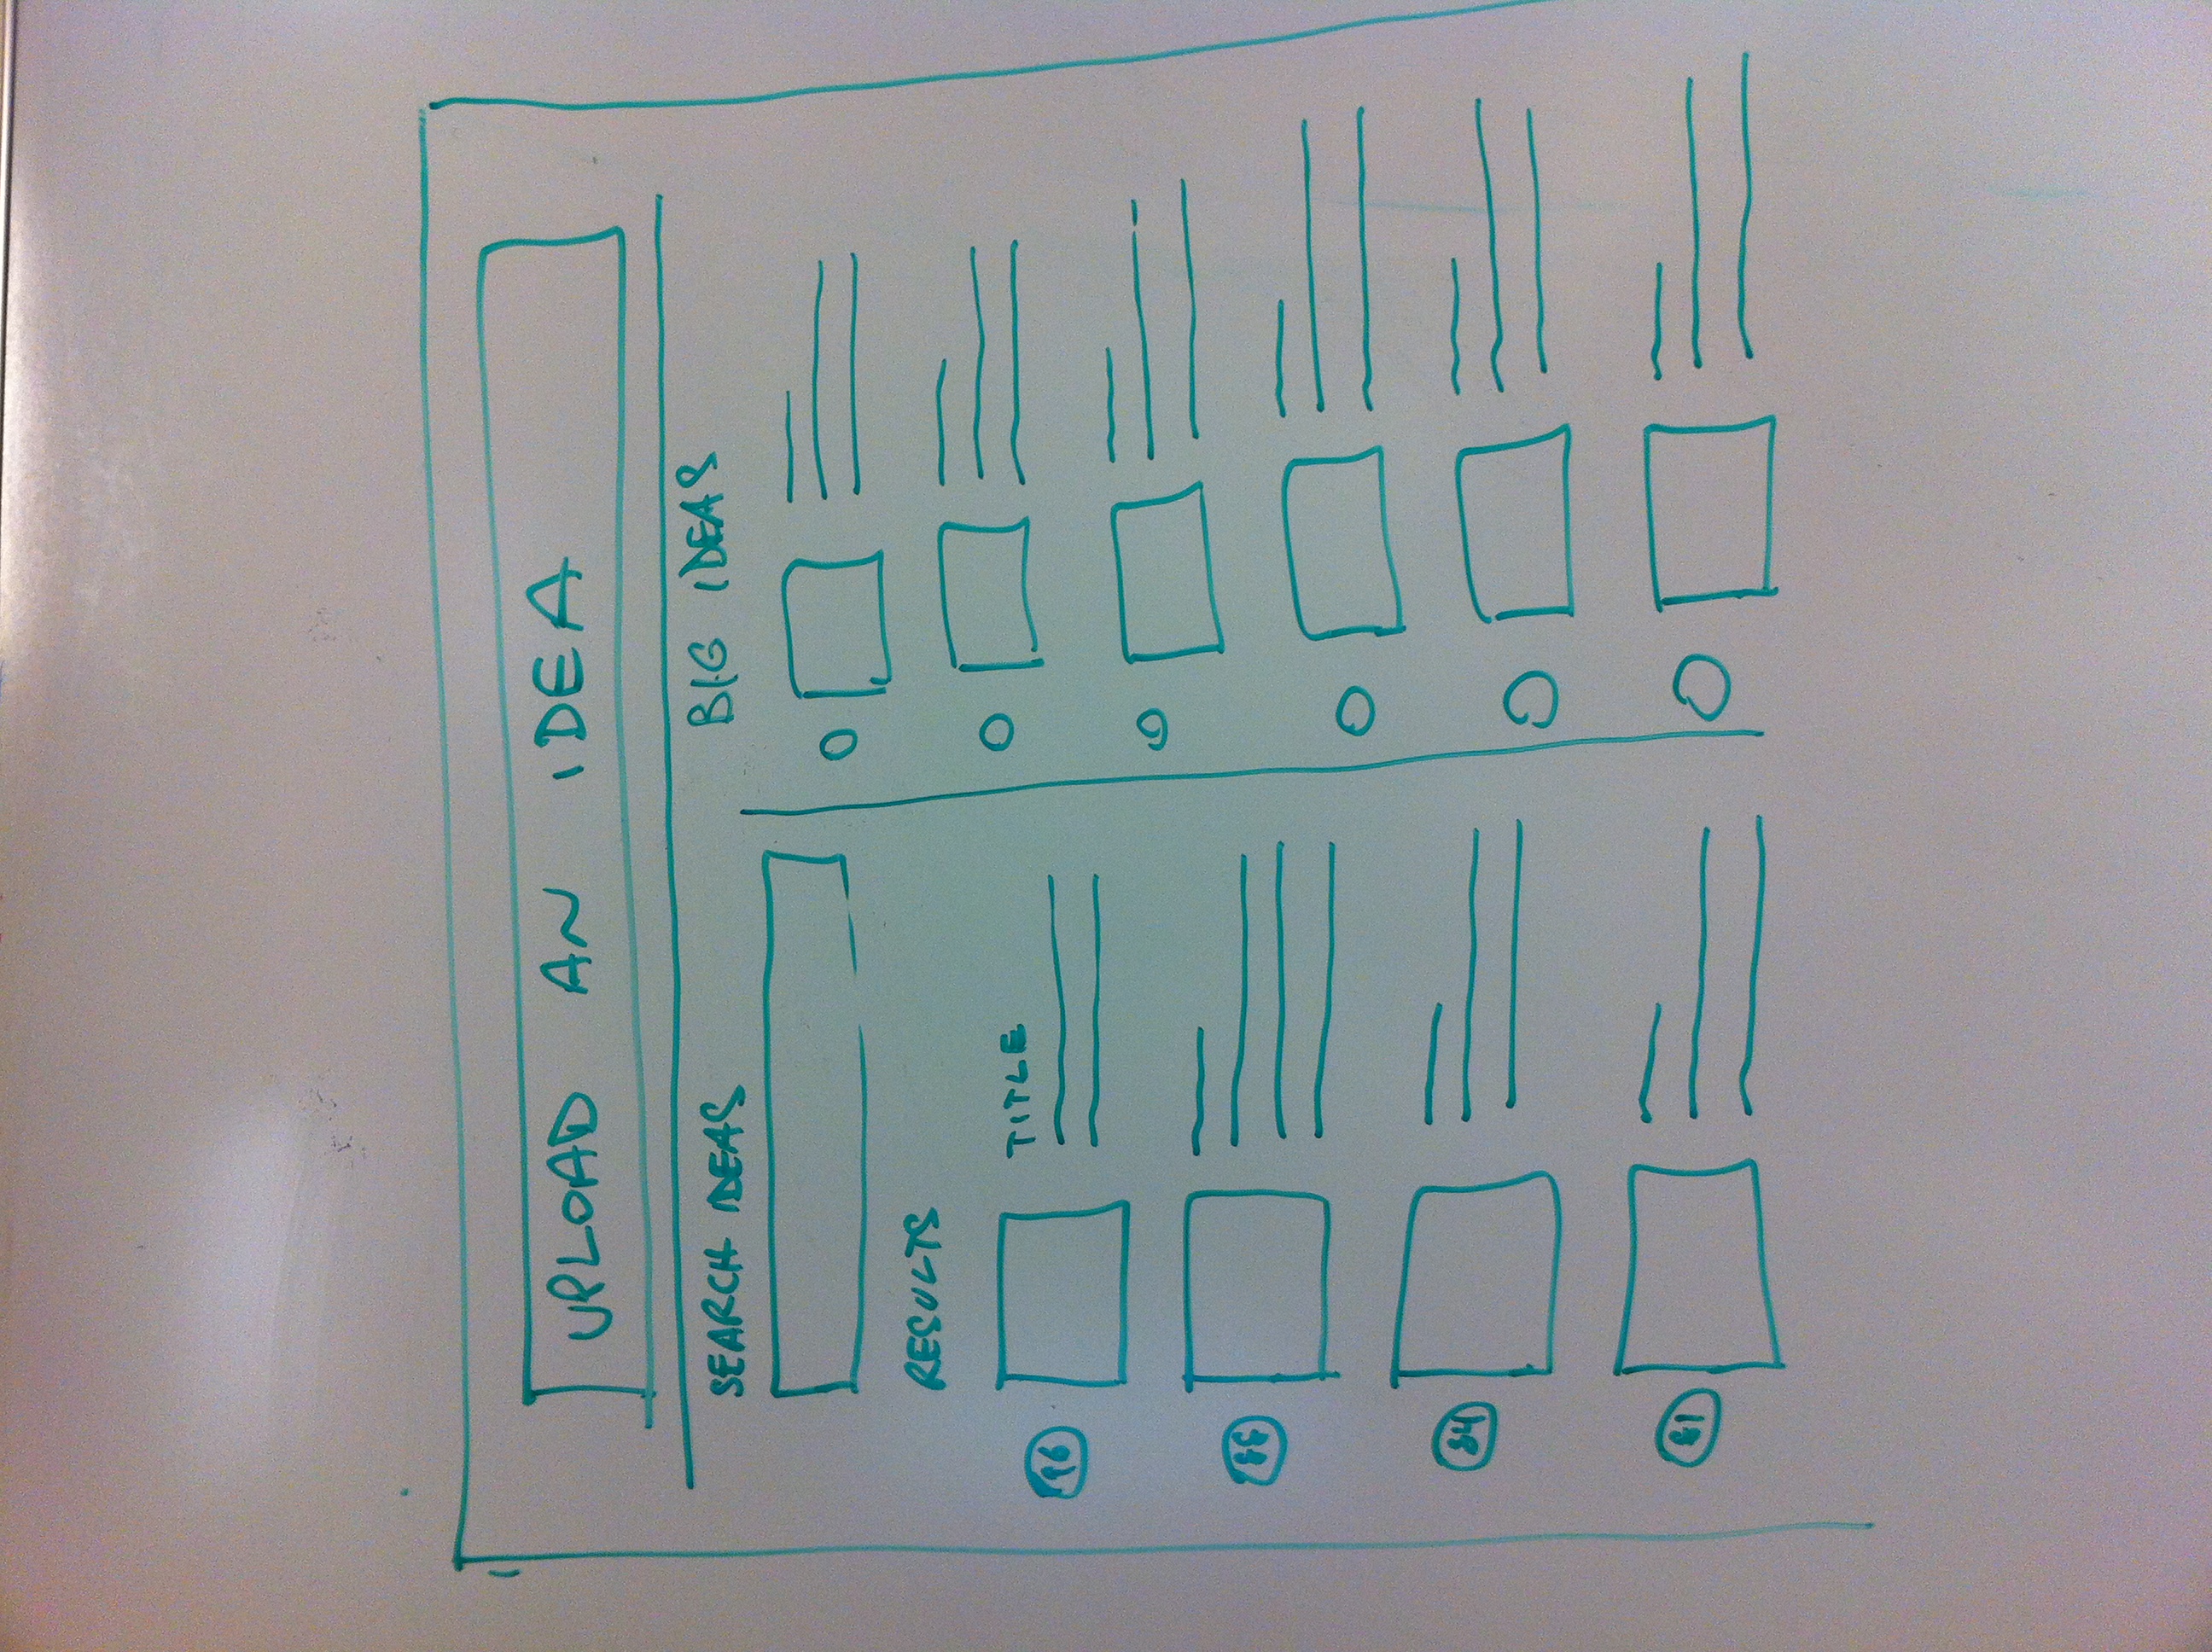 UPLOAD AN IDEA
SEARCH IDEAS
RESULTS
96
TITLE
88
84
81
BIG IDEAS